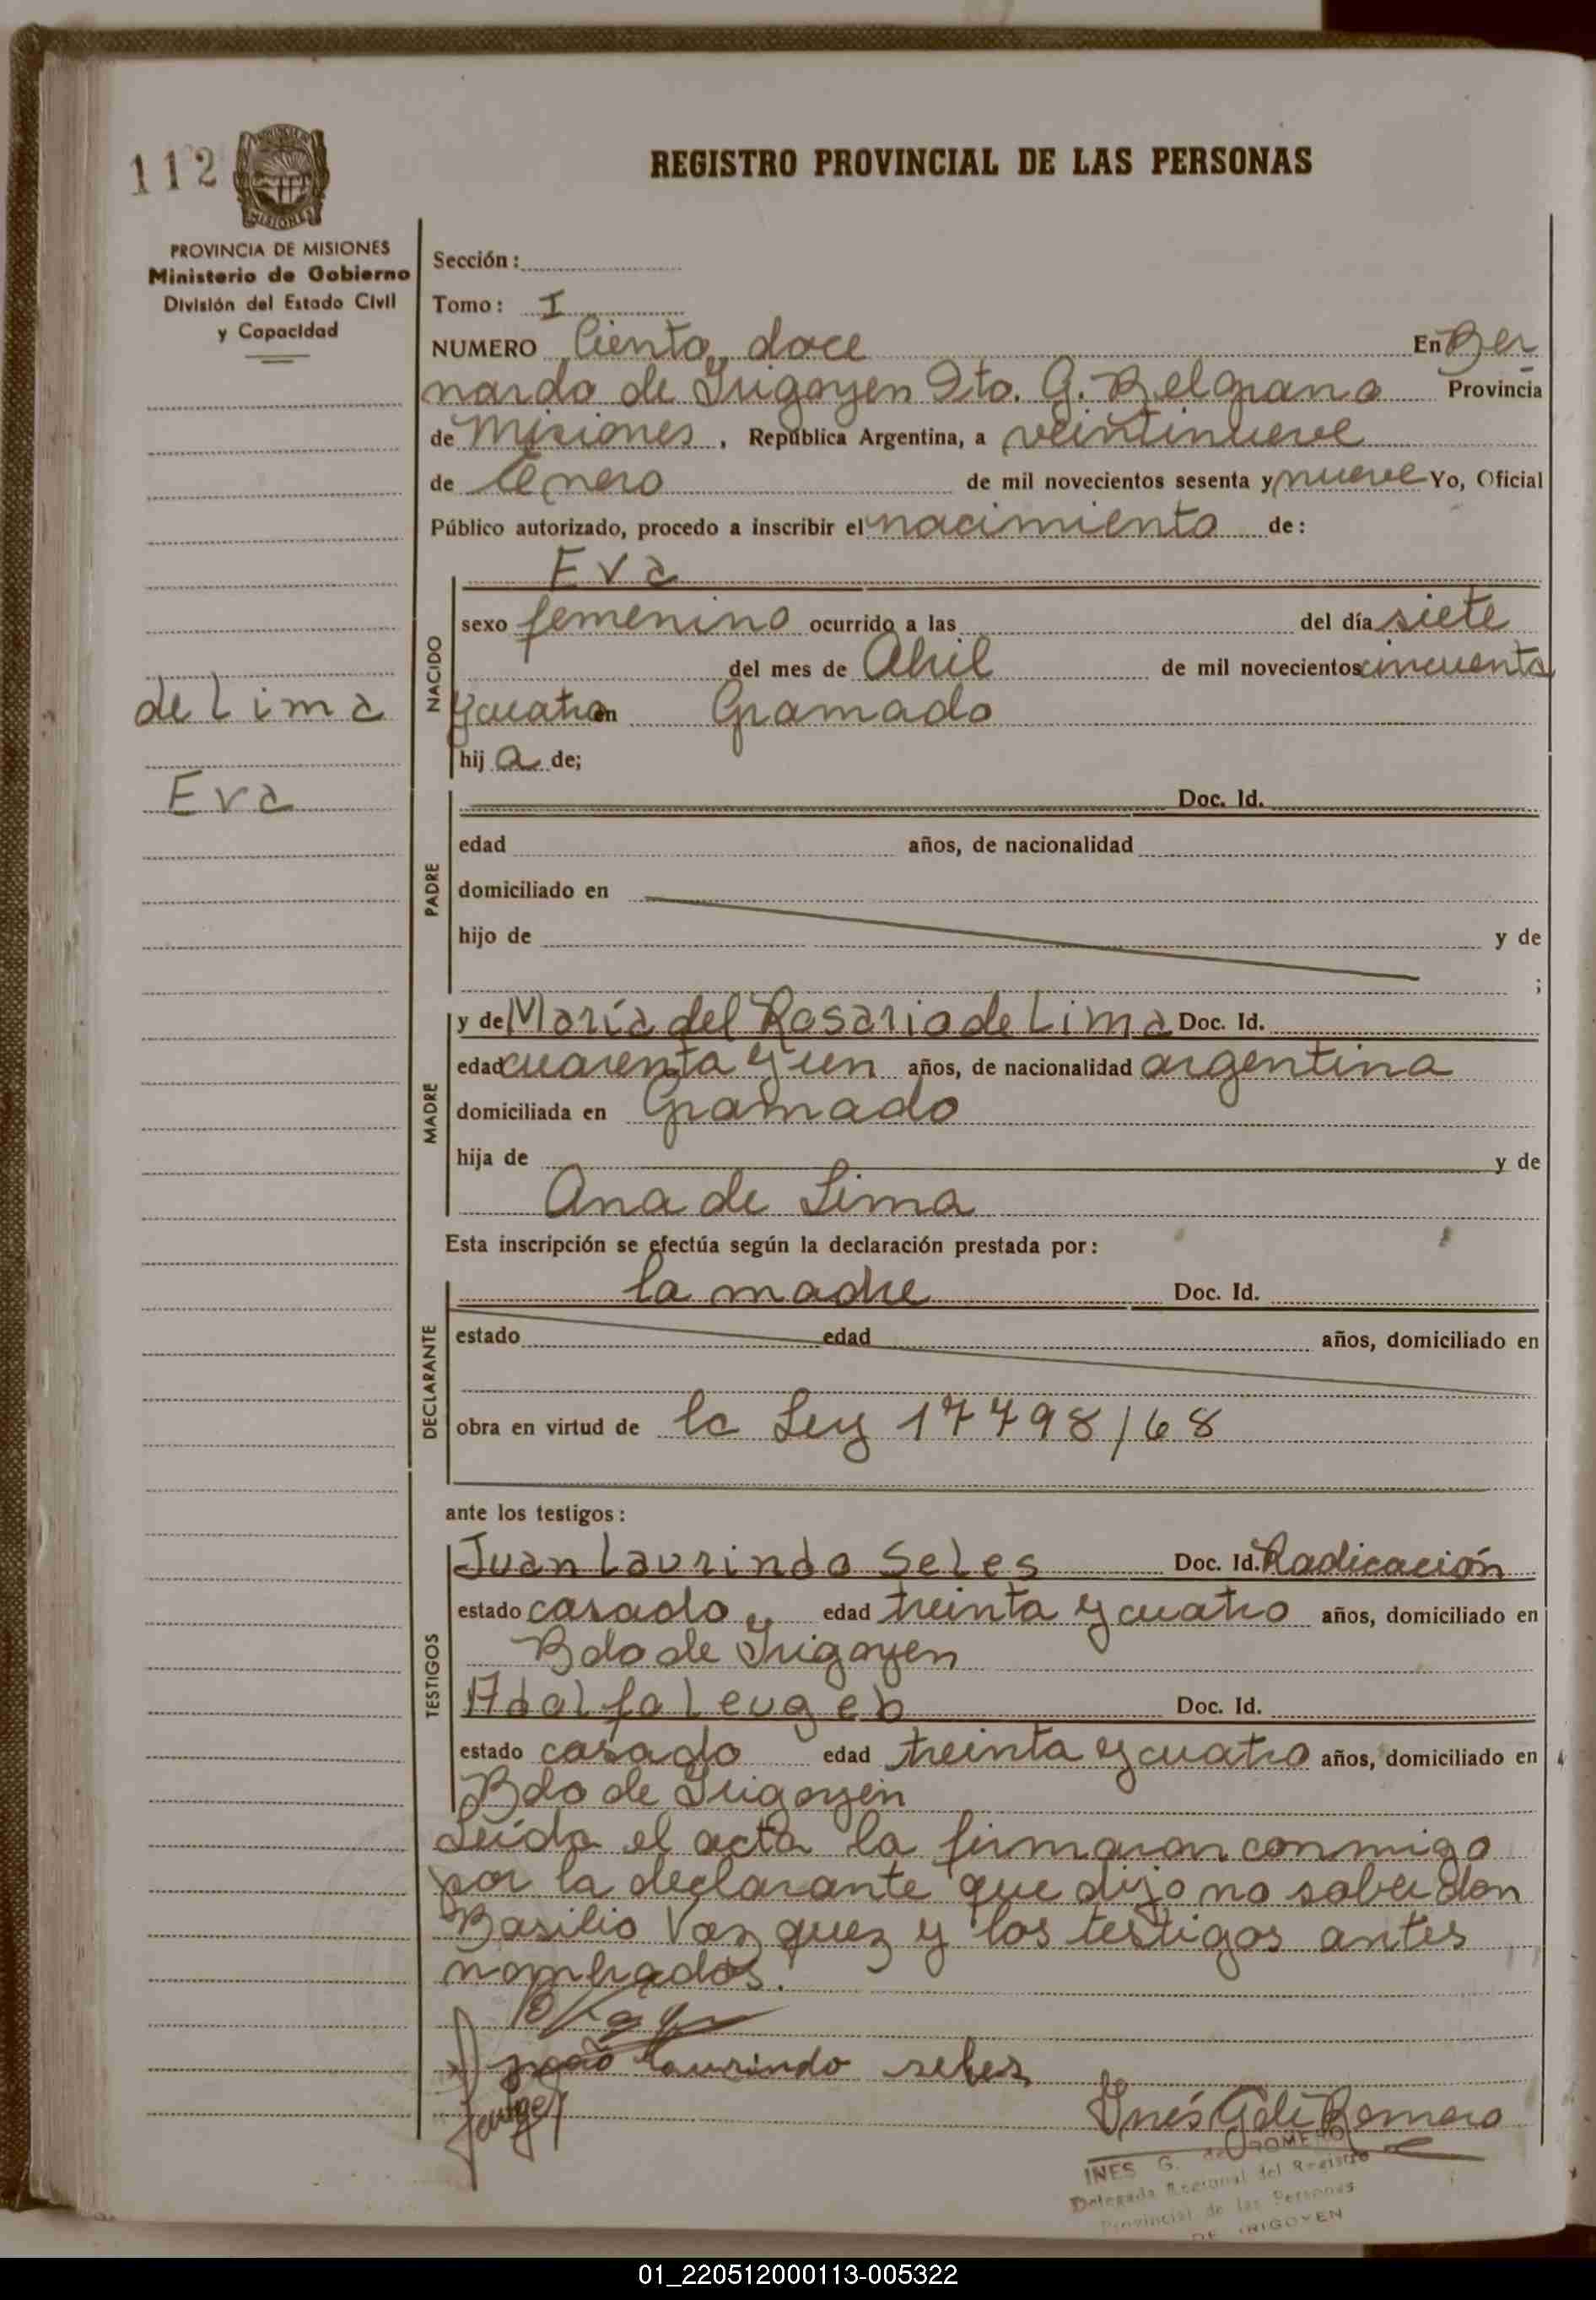 112
PROVINCIA DE MISIONES
Ministerio de Gobierno
División del Estado Civil
y Capacidad
de Lima
Eva
REGISTRO PROVINCIAL DE LAS PERSONAS
Sección:
Tomo: I
NUMERO Ciento doce En Ber
nardo de Irigoyen Dto. G. Belgrano Provincia
de Misiones, República Argentina, a veintinueve
de Enero de mil novecientos sesenta y nueve Yo, Oficial
Público autorizado, procedo a inscribir el nacimiento de:
NACIDO
Eva
sexo femenino ocurrido a las del día siete
del mes de Abril de mil novecientos cincuenta
y cuatro en Gramado
hij a de;
PADRE
Doc. Id.
edad años, de nacionalidad
domiciliado en
hijo de y de
;
MADRE
y de María del Rosario de Lima Doc. Id.
edad cuarenta y un años, de nacionalidad argentina
domiciliada en Gramado
hija de y de
Ana de Lima
Esta inscripción se efectúa según la declaración prestada por:
DECLARANTE
la madre Doc. Id.
estado edad años, domiciliado en
obra en virtud de la Ley 17798/68
ante los testigos:
TESTIGOS
Juan Laurindo Seles Doc. Id. Radicación
estado casado edad treinta y cuatro años, domiciliado en
Bdo de Irigoyen
Adolfo Leugeb Doc. Id.
estado casado edad treinta y cuatro años, domiciliado en
Bdo de Irigoyen
Leída el acta la firmaron conmigo
por la declarante que dijo no saber don
Basilio Vazquez y los testigos antes
nombrados.
João Laurindo seles
Inés G de Romero
INES G. de ROMERO
Delegada Seccional del Registro
Provincial de las Personas
DE IRIGOYEN
01_220512000113-005322